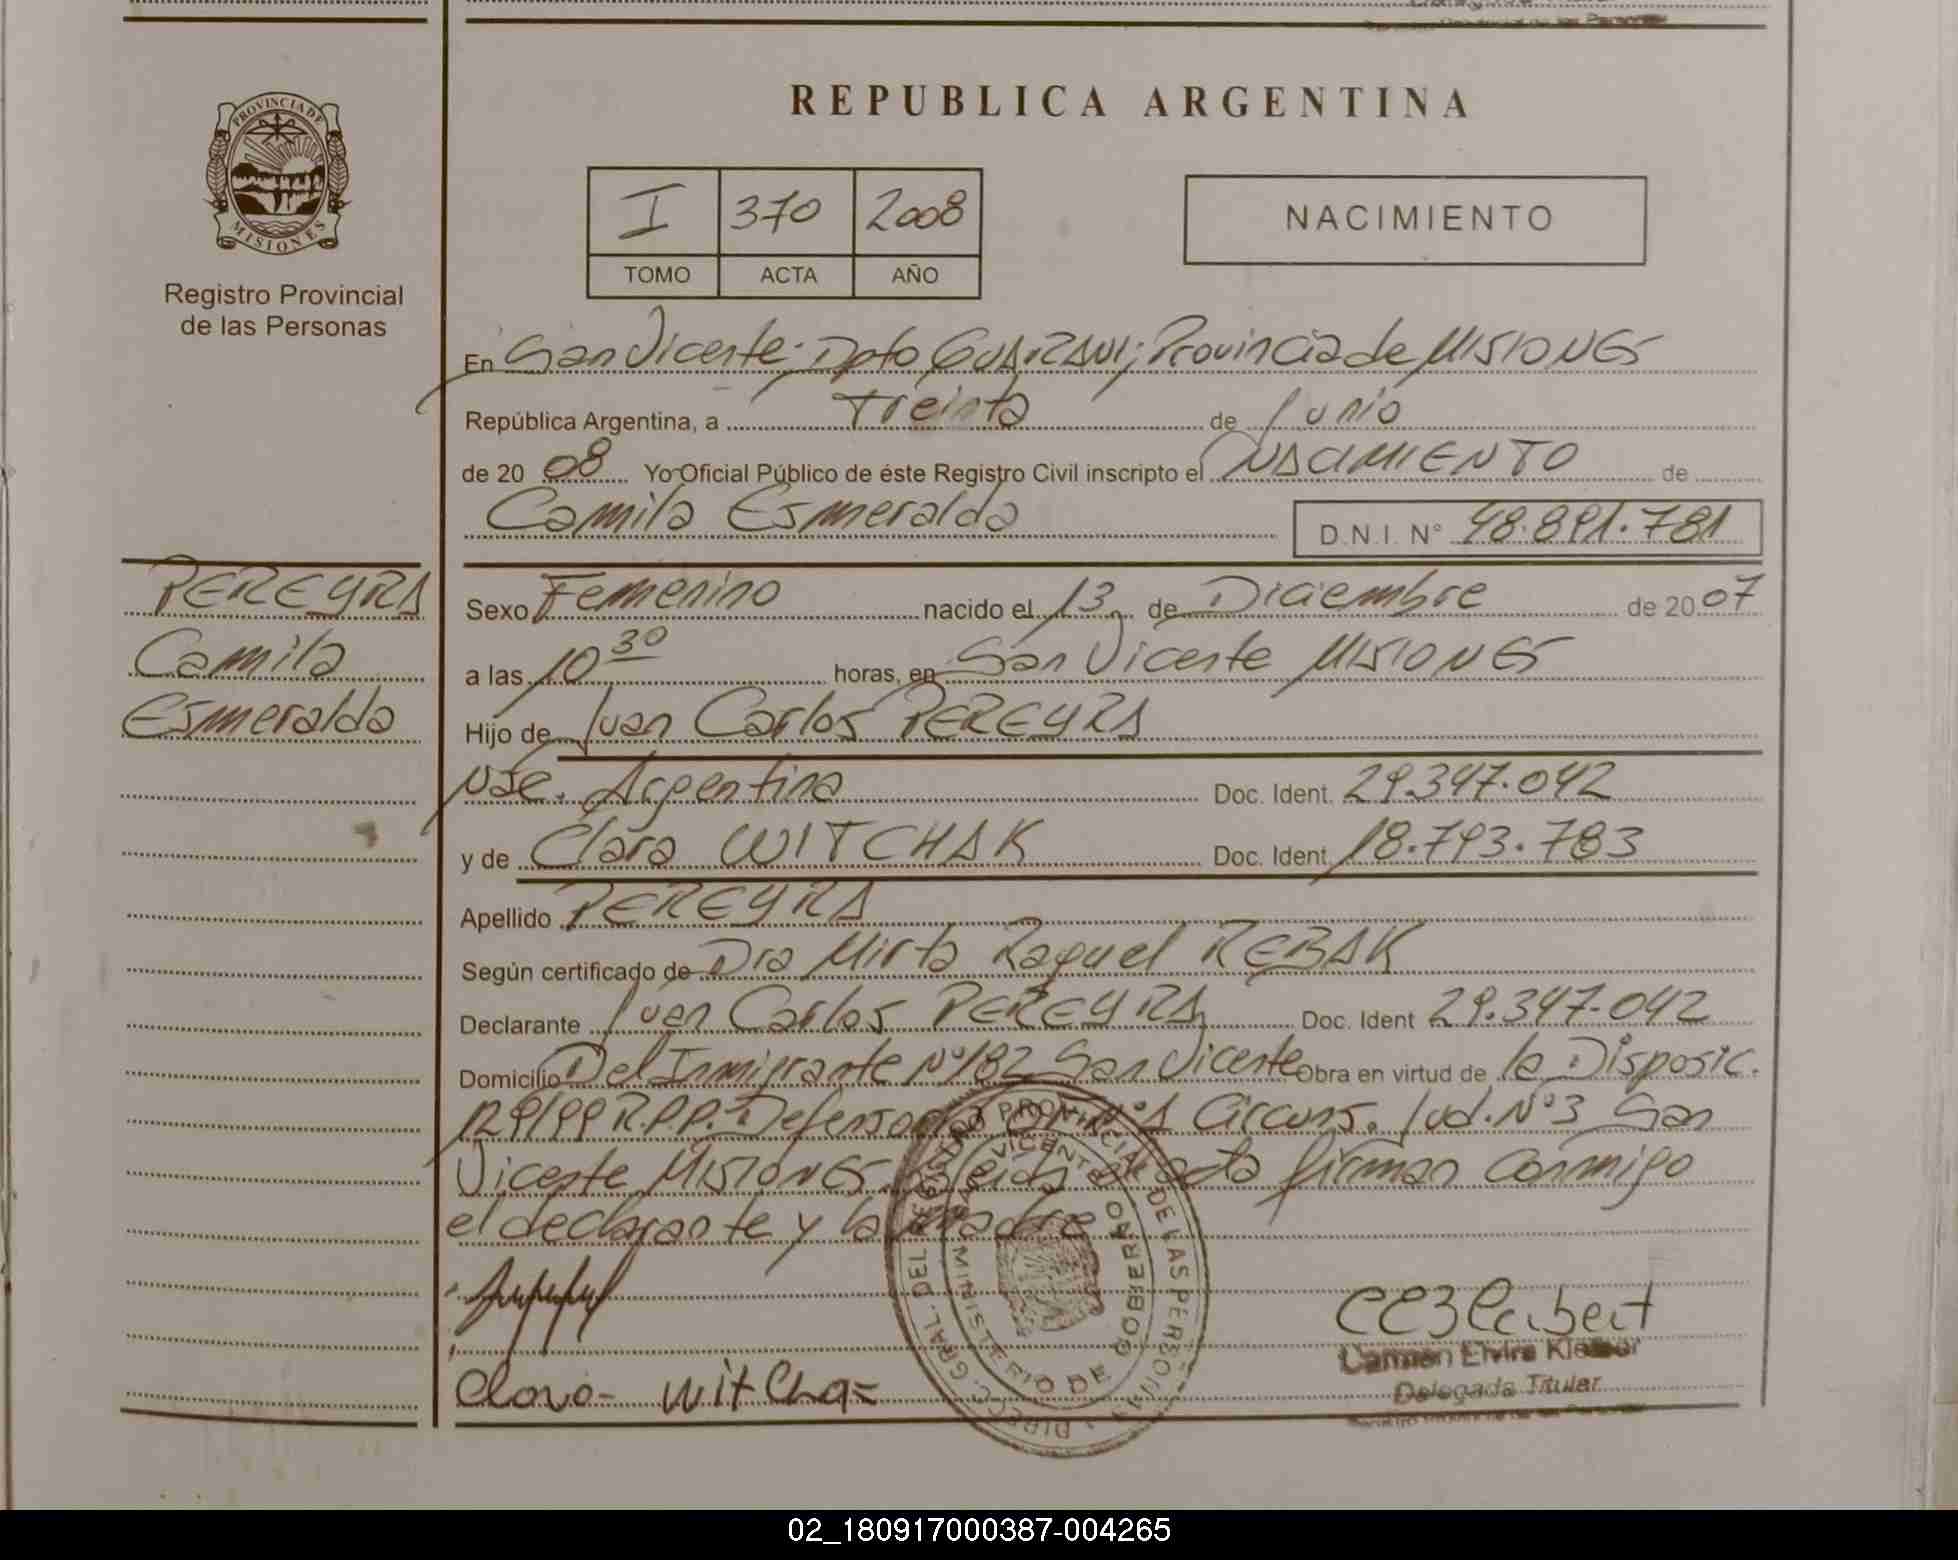 REPUBLICA ARGENTINA
PROVINCIA DE
MISIONES
Registro Provincial
de las Personas
I 370 2008
TOMO ACTA AÑO
NACIMIENTO
En San Vicente - Dpto GUARANI; Provincia de MISIONES
República Argentina, a Treinta de Junio
de 20 08 Yo Oficial Público de éste Registro Civil inscripto el NACIMIENTO de
Camila Esmeralda D.N.I. N° 48.891.781
PEREYRA
Camila
Esmeralda
Sexo Femenino nacido el 13 de Diciembre de 20 07
a las 10 30 horas, en San Vicente MISIONES
Hijo de Juan Carlos PEREYRA
Nac. Argentina Doc. Ident. 29.347.042
y de Clara WITCHAK Doc. Ident. 18.793.783
Apellido PEREYRA
Según certificado de Dra Mirta Raquel REBAK
Declarante Juan Carlos PEREYRA Doc. Ident 29.347.042
Domicilio Del Inmigrante N° 182 San Vicente Obra en virtud de la Disposic.
129/99 R.P.P. Defensoria N°1 Circuns. Jud. N°3 San
Vicente MISIONES. Leida el acta firman conmigo
el declarante y la madre
DIREC. GRAL. DEL REGISTRO PROVINCIAL DE LAS PERSONAS
MINISTERIO DE GOBIERNO
SAN VICENTE
Carmen Elvira
Delegada Titular
Clara Witcha
02_180917000387-004265